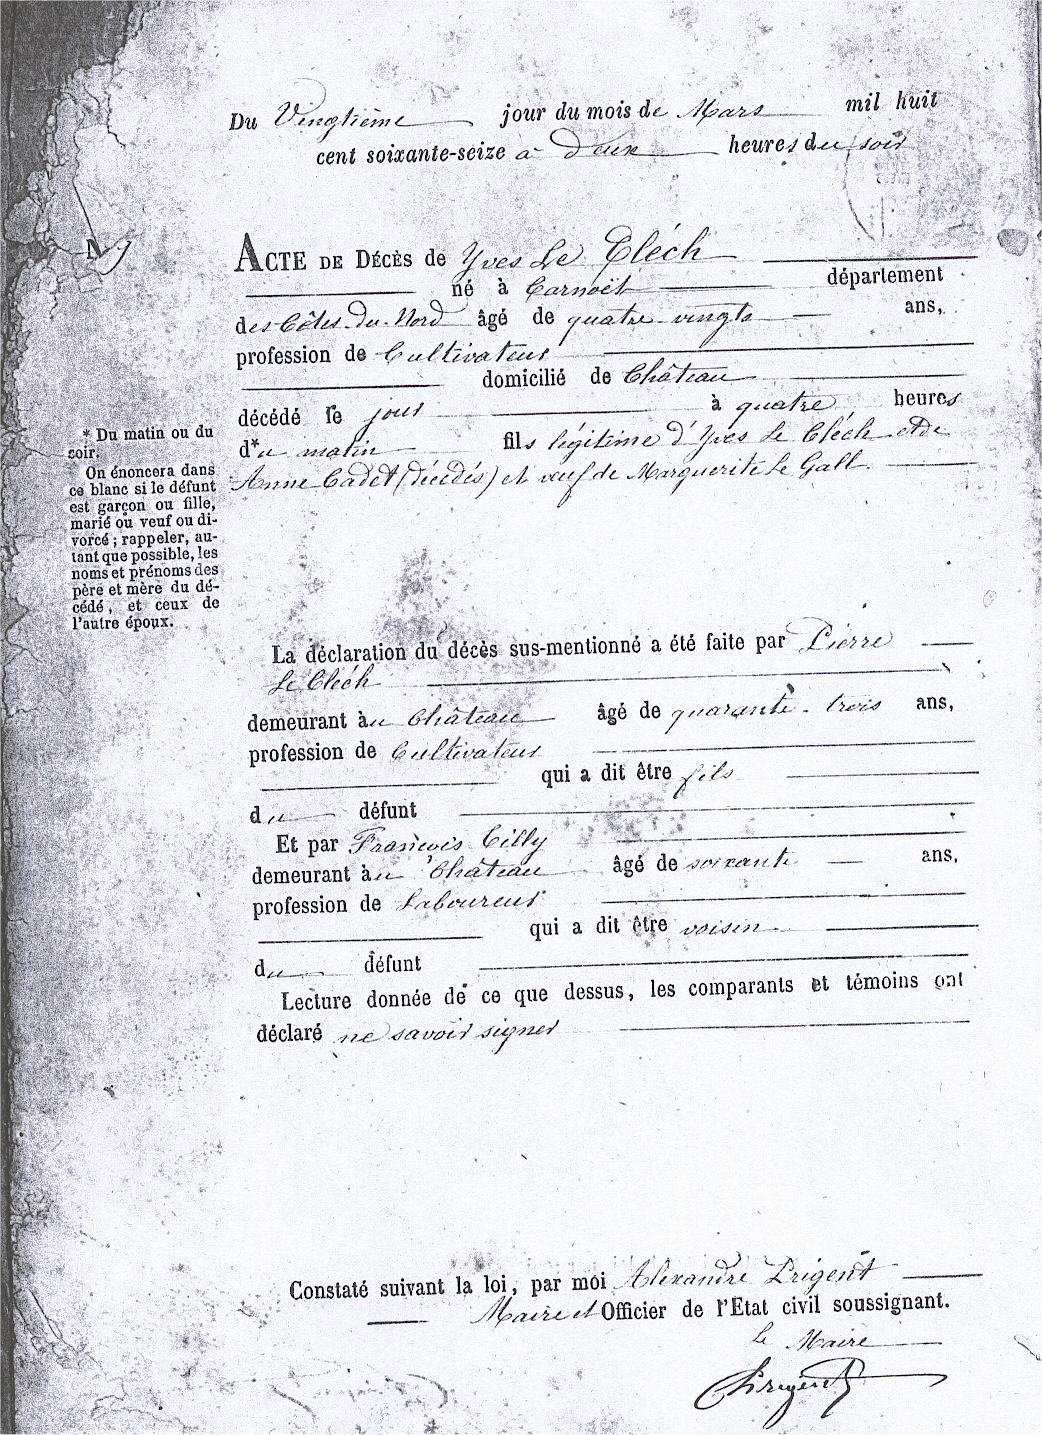 Du Vingtième jour du mois de Mars mil huit
cent soixante-seize à Deux heures du soir
N
ACTE DE DÉCÈS de Yves Le Cléch
né à Carnoët département
des Côtes-du-Nord âgé de quatre-vingts ans,
profession de Cultivateur
domicilié de Château
décédé le jour à quatre heures
d*u matin fils légitime d'Yves Le Cléch et de
Anne Cadet (décédés) et veuf de Marguerite Le Gall.
* Du matin ou du
soir.
On énoncera dans
ce blanc si le défunt
est garçon ou fille,
marié ou veuf ou di-
vorcé ; rappeler, au-
tant que possible, les
noms et prénoms des
père et mère du dé-
cédé, et ceux de
l'autre époux.
La déclaration du décès sus-mentionné a été faite par Pierre
Le Cléch
demeurant àu Château âgé de quarante-trois ans,
profession de Cultivateur
qui a dit être fils
du défunt
Et par François Cilly
demeurant àu Château âgé de soixante ans,
profession de Laboureur
qui a dit être voisin
du défunt
Lecture donnée de ce que dessus, les comparants et témoins ont
déclaré ne savoir signer
Constaté suivant la loi, par moi Alexandre Prigent
Maire et Officier de l'Etat civil soussignant.
Le Maire
Prigent